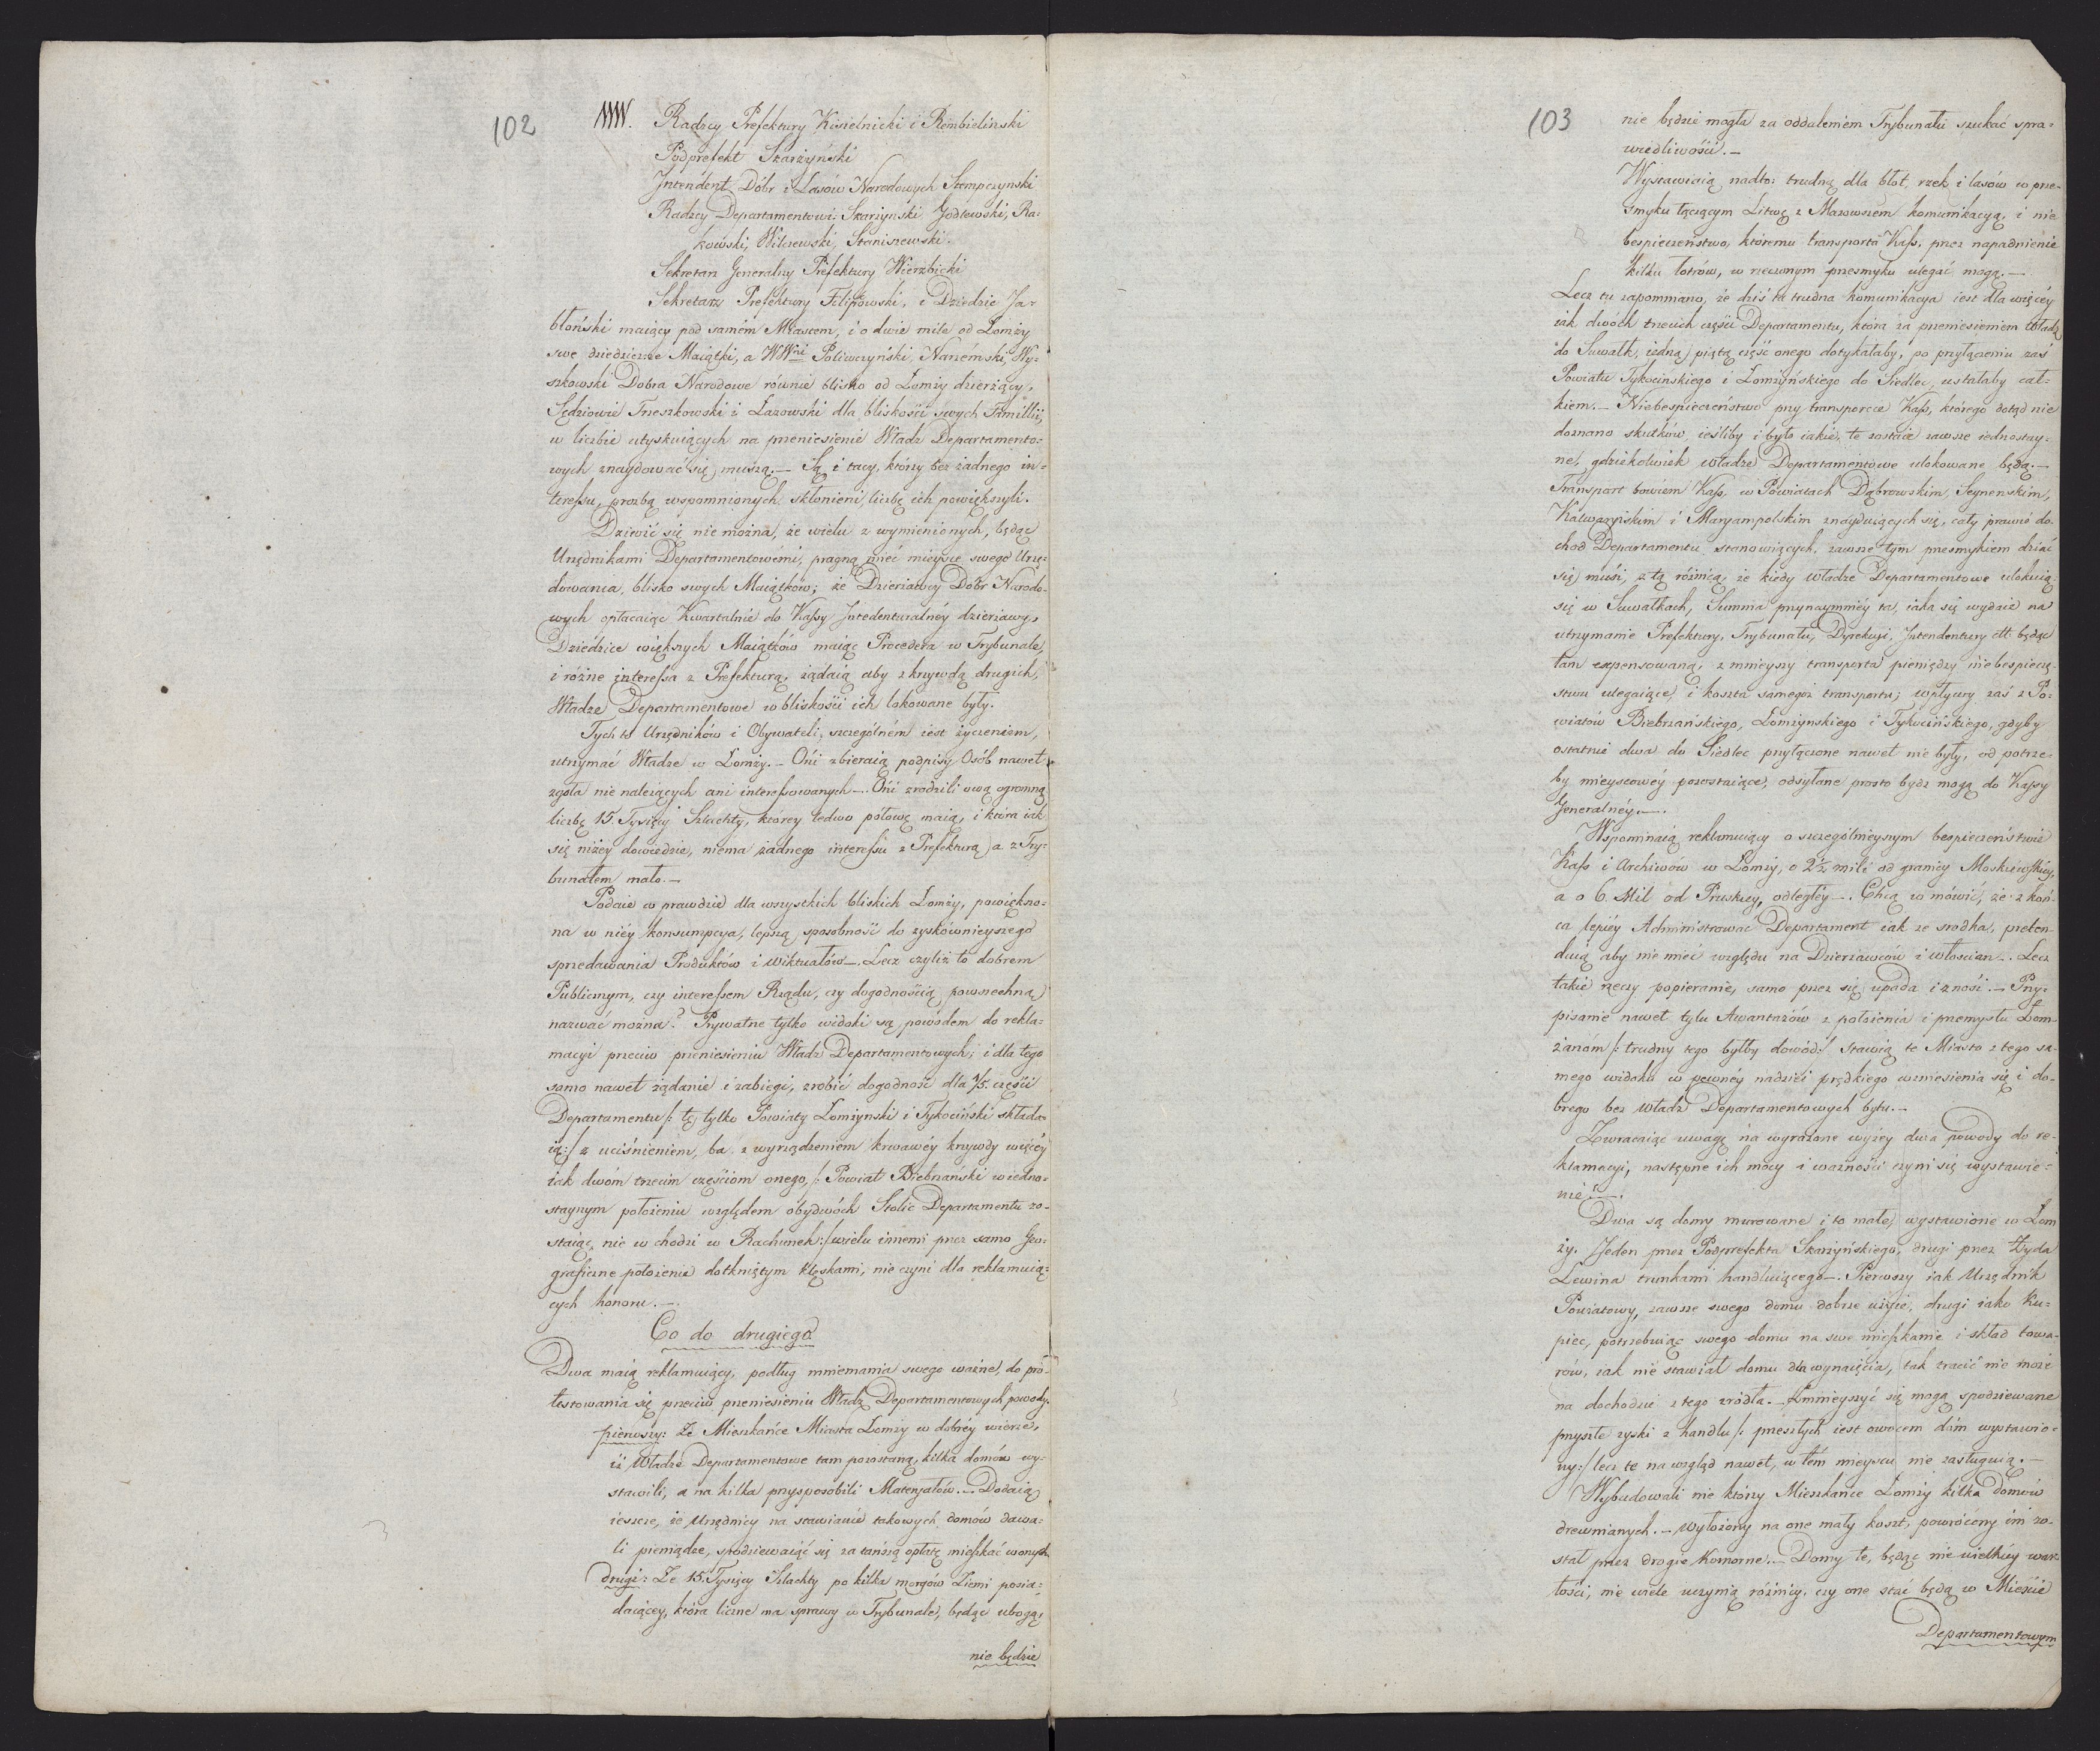 102
WW. Radzcy Prefektury Kisielnicki i Rembielinski
Podprefekt Skarżyński
Intendent Dóbr i Lasów Narodowych Stempczynski
Radzcy Departamentowi: Skarżynski Godlewski, Ra-
kowski, Wilczewski, Staniszewski.
Sekretarz Generalny Prefektury Wierzbicki
Sekretarz Prefektury Filipowski, i Dziedzic Ja-
błoński maiący pod samém Miastem, i o dwie mile od Łomży
swe dziedziczne Maiątki, a WWni Poliwczyński, Nariémski, Wy-
szkowski Dobra Narodowe równie blisko od Łomży dzierżący,
Sędziowie Trzeszkowski i Łazowski dla bliskości swych Familii,
w liczbie utyskuiących na przeniesienie Władz Departamento-
wych znaydować się muszą. — Są i tacy, którzy bez żadnego in-
teressu, prozbą wspomnionych skłonieni, liczbę ich powiększyli.
Dziwić się nie można, że wielu z wymienionych, będąc
Urzędnikami Departamentowémi, pragną mieć mieysce swego Urzę-
dowania, blisko swych Maiątków; że Dzierżawcy Dóbr Narodo-
wych opłacaiąc Kwartalnie do Kassy Intedenturalnéy dzierżawy,
Dziédzice większych Maiątków maiąc Procedera w Trybunale,
i różne interessa z Prefekturą, żądaią aby z krzywdą drugich,
Władze Departamentowe w bliskości ich lokowane były.
Tych to Urzędników i Obywateli, szczególném iest życzeniem,
utrzymać Władze w Łomży. — Oni zbieraią podpisy Osób nawet
zgoła nie należących ani interessowanych —. Oni zrodzili ową ogromną
liczbę 15. Tysięcy Szlachty, ktorey ledwo połowę maią, i która iak
się niżey dowiedzie, niema żadnego interessu z Prefekturą a z Try-
bunałem mało. —
Podaie w prawdzie dla wszystkich bliskich Łomży, powiększo-
na w niéy konsumpcya, lepszą sposobność do zyskównieyszego
sprzedawania Produktów i wiktuałów —. Lecz czyliż to dobrem
Publicznym, czy interessem Rządu, czy dogodnością powszechną
nazwać można? Prywatne tylko widoki są powodem do rekla-
macyi przeciw przeniesieniu Władz Departamentowych; i dla tego
samo nawet żądanie i zabiegi, zrobić dogodność dla 1/5. części
Departamentu /: tę tylko Powiaty Łomżynski i Tykociński składa-
ią :/ z uciśnieniem, ba z wyrządzeniem krwawéy krzywdy więcéy
iak dwóm trzecim częściom onego, /: Powiat Biebrzański w iedno-
staynym położeniu względem obydwóch Stolic Departamentu zo-
staiąc, nie w chodzi w Rachunek :/ wielu innemi przez samo Geo-
graficzne położenie dotkniętym klęskami, nie czyni dla reklamuią-
cych honoru. —
Co do drugiego
Dwa maią reklamuiący, podług mniemania swego ważne, do pro-
testowania się przeciw przeniesieniu Władz Departamentowych powody.
pierwszy: Że Mieszkańce Miasta Łomży w dobréy wierze,
iż Władze Departamentowe tam pozostaną, kilka domów wy-
stawili, a na kilka przysposobili Materyałów. — Dodaią
ieszcze, że Urzędnicy na stawianie takowych domów dawa-
li pieniądze, spodziewaiąc się za tańszą opłatę mieszkać w onych.
drugi: Że 15. Tysięcy Szlachty po kilka morgów Ziemi posia-
daiącey, która liczne ma sprawy w Trybunale, będąc ubogą,
nie będzie
103
nie będzie mogła za oddaleniem Trybunału szukać spra-
wiedliwości. —
Wystawiaią nadto: trudną dla błot, rzek i lasów w prze-
smyku łączącym Litwę z Mazowszem komunikacyą, i nie
bespieczeństwo, któremu transporta Kass, przez napadnienie
kilku łotrów, w rzeczonym przesmyku ulegać mogą. —
Lecz tu zapommano, że dziś ta trudna komunikacya iest dla więcéy
iak dwóch trzecich części Departamentu, która za przeniesieniem Władz
do Suwałk, iedną piątą część onego dotykałaby, po przyłączeniu zaś
Powiatu Tykocinskiego i Łomżyńskiego do Siedlec, ustałaby cał-
kiem. — Niebespieczeństwo przy transporcie Kass, którego dotąd nie
doznano skutków, ieśliby i było iakie, te zostaie zawsze iednostay-
ne, gdziekolwiek władze Departamentowe ulokowane będą. —
Transport bowiem Kass, w Powiatach Dąbrowskim, Seynenskim,
Kalwaryiskim i Maryampolskim znayduiących się, cały prawie do-
chod Departamentu stanowiących, zawsze tym przesmykiem dziać
się musi, z tą różnicą, że kiedy władze Departamentowe ulokuią
się w Suwałkach, Summa przynaymniéy ta, iaka się wydaie na
utrzymanie Prefektury, Trybunału, Dyrekcyi, Intendentury &tt będąc
tam expensowaną, zmnieyszy transporta pieniędzy niebespiecz-
stwu ulegaiące, i koszta samegoż transportu; wpływy zaś z Po-
wiatów Biebrzańskiego, Łomżynskiego i Tykocińskiego, gdyby
ostatnie dwa do Siedlec przyłączone nawet nie były, od potrze-
by mieyscowéy pozostaiące, odsyłane prosto bydz mogą do Kassy
Generalnéy —.
Wspominaią reklamuiący o szczególnieyszym bespieczeństwie
Kass i Archiwów w Łomży, o 2½ mili od granicy Moskiewskiey,
a o 6. Mil od Pruskiey, odległéy —. Chcą w mówić, że z koń-
ca lepiéy Administrować Departament iak ze srodka, preten-
duią aby nie mieć względu na Dzierżawców i włoscian —. Lecz
takie rzeczy popieranie, samo przez się upada i znosi. — Przy-
pisanie nawet tylu Awantażów z położenia i przemysłu Łom-
żanom /: trudny tego byłby dowód :/ stawią te Miasto z tego sa-
mego widoku w pewnéy nadziei prędkiego wzniesienia się i do-
brego bez Władz Departamentowych bytu. —
Zwracaiąc uwagę na wyrażone wyżey dwa powody do re-
klamacyi, następne ich mocy i ważności czyni się wystawie-
nié —.
Dwa są domy murowane i to małe, wystawione w Łom
ży. Jeden przez Podprefekta Skarżyńskiego, drugi przez Żyda
Lewina trunkami handluiącego —. Pierwszy iak Urzędnik
Powiatowy, zawsze swego domu dobrze użyie, drugi iako Ku-
piec, potrzebuiąc swego domu na swe mieszkanie i skład towa-
rów, iak nie stawiał domu dla wynaięcia, tak tracić nie może
na dochodzie z tego zrodła. — Zmnieyszyć się mogą spodziewane
przyszłe zyski z handlu /: przeszłych iest owocem dóm wystawio-
ny :/ lecz te na wzgląd nawet, w tém mieyscu nie zasługuią. —
Wybudowali nie którzy Mieszkańce Łomży kilka domów
drewnianych. — Wyłożony na one mały koszt, powrócony im zo-
stał przez drogie Komorne. — Domy te, będąc nie wielkiéy war-
tości, nie wiele uczynią różnicy, czy one stać będą w Mieście
Departamentowym